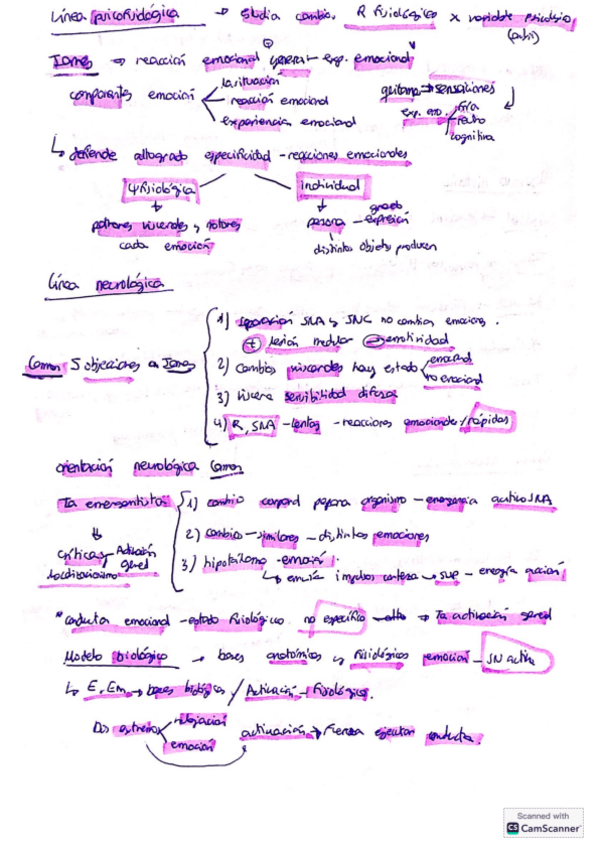 Línea psicofisiológica → Estudia cambios R fisiológico x variable psicológica
James → reacción emocional genera exp. emocional
componentes emoción
la situación
reacción emocional
experiencia emocional
quitamos → sensaciones
exp. emo.
cognitiva
↳ defiende alto grado especificidad - reacciones emocionales
Ψfisiológica
individual
patrones viscerales y motores
cada emoción
persona - grado expresión
distintos objetos producen
Línea neurológica
Cannon 5 objeciones a James
1) separación SNA y SNC no cambia emociones.
+ lesión medular - emotividad
2) Cambios viscerales hay estado
emocional
no emocional
3) Víscera sensibilidad difusa
4) R, SNA - lentas - reacciones emocionales / rápidas
orientación neurológica Cannon
Ta emergentista
críticas
Activación general
Localizacionismo
1) cambio corporal prepara organismo - emergencia activa SNA
2) cambios - similares - distintas emociones
3) hipotálamo - emoción
↳ envía impulsos corteza → sup - energía acción
*conducta emocional - estado fisiológico no específico → Ta activación general
Modelo biológico → bases anatómicas y fisiológicas emoción - SN activa
↳ E. Em → bases biológicas / Activación - fisiológica.
Dos extremos
relajación
emoción
activación → Fuerza ejecutar conducta.
Scanned with
CS CamScanner